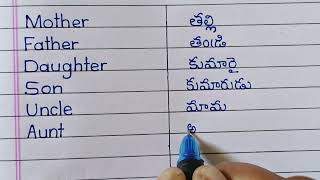 Mother తల్లి
Father తండ్రి
Daughter కుమారై
Son కుమారుడు
Uncle మామ
Aunt అ